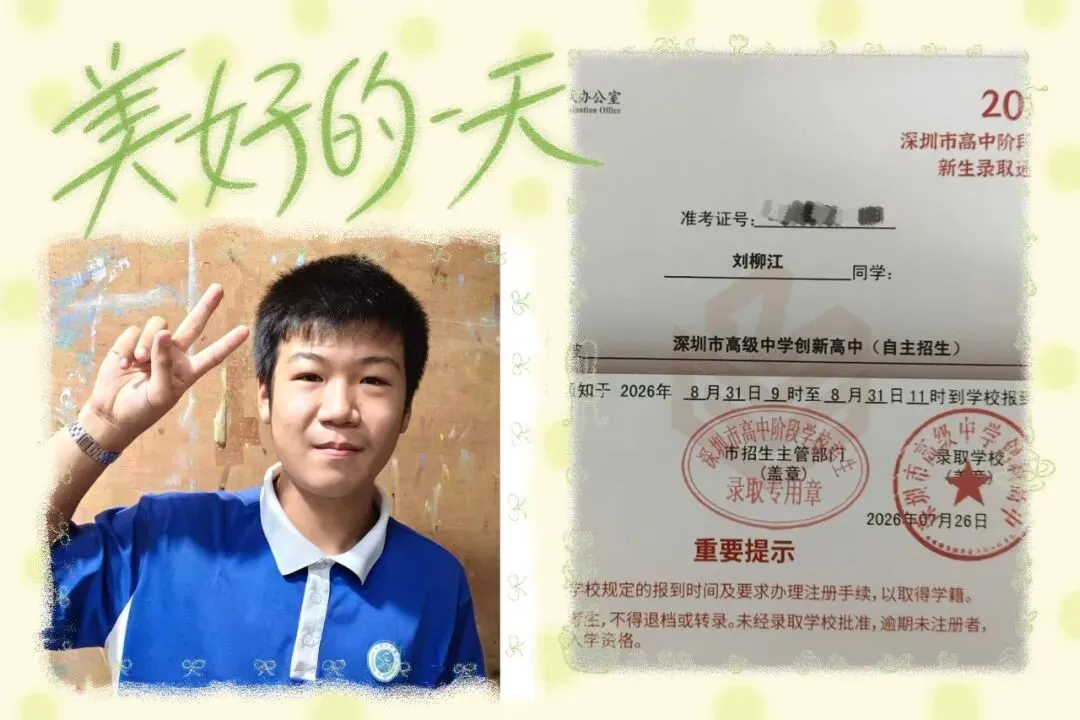 美好的一天
办公室
ination Office
20
深圳市高中阶段
新生录取通
准考证号:
刘柳江
同学:
深圳市高级中学创新高中（自主招生）
知于 2026年 8月31日9时至8月31日11时到学校报到
深圳市高中阶段学校招生
市招生主管部门
(盖章)
录取专用章
录取学校
(盖章)
2026年07月26日
重要提示
学校规定的报到时间及要求办理注册手续，以取得学籍。
考生，不得退档或转录。未经录取学校批准，逾期未注册者，
入学资格。